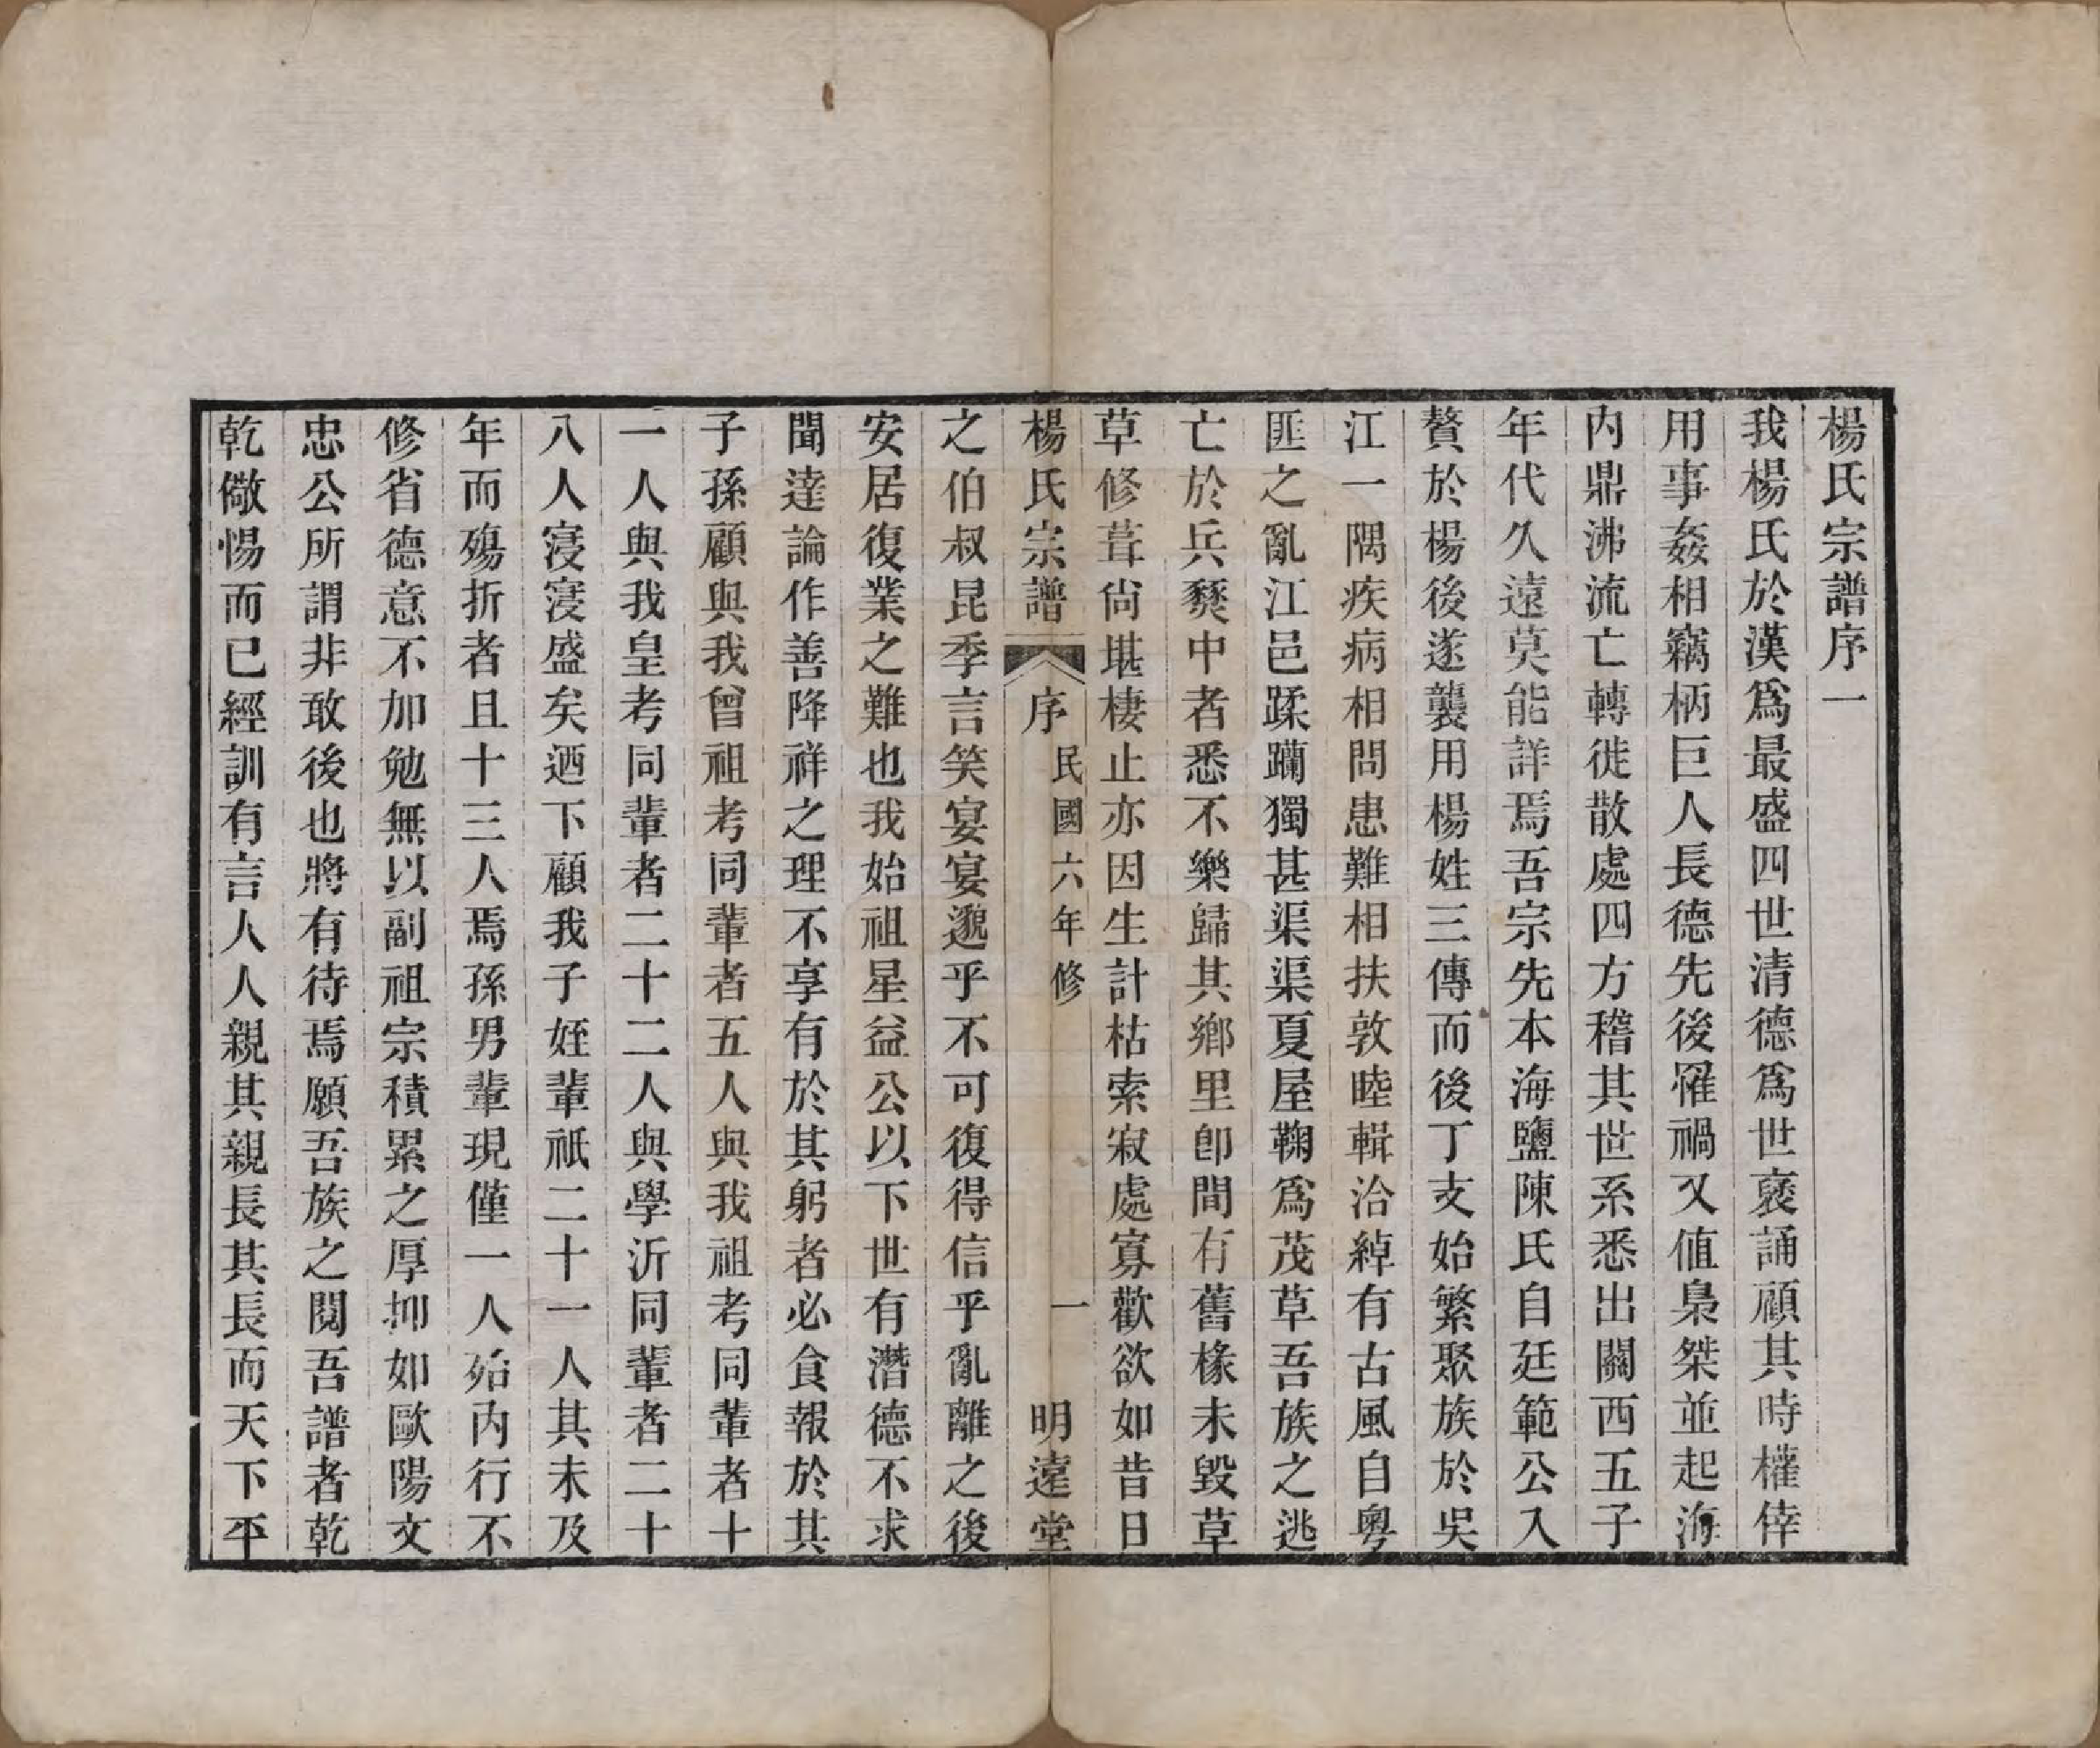 楊氏宗譜序一
我楊氏於漢爲最盛四世清德爲世襃誦顧其時權倖
用事姦相竊柄巨人長德先後罹禍又值梟桀並起海
内鼎沸流亡轉徙散處四方稽其世系悉出關西五子
年代久遠莫能詳焉吾宗先本海鹽陳氏自廷範公入
贅於楊後遂襲用楊姓三傳而後丁支始繁聚族於吳
江一隅疾病相問患難相扶敦睦輯洽綽有古風自粵
匪之亂江邑蹂躪獨甚渠渠夏屋鞠爲茂草吾族之逃
亡於兵燹中者悉不樂歸其鄉里卽間有舊椽未毀草
草修葺尙堪棲止亦因生計枯索寂處寡歡欲如昔日
楊氏宗譜 序 民國六年修 一 明遠堂
之伯叔昆季言笑宴宴邈乎不可復得信乎亂離之後
安居復業之難也我始祖星益公以下世有潛德不求
聞達論作善降祥之理不享有於其躬者必食報於其
子孫顧與我曾祖考同輩者五人與我祖考同輩者十
一人與我皇考同輩者二十二人與學沂同輩者二十
八人寖寖盛矣迺下顧我子姪輩祇二十一人其未及
年而殤折者且十三人焉孫男輩現僅一人殆内行不
修省德意不加勉無以副祖宗積累之厚抑如歐陽文
忠公所謂非敢後也將有待焉願吾族之閱吾譜者乾
乾儆惕而已經訓有言人人親其親長其長而天下平